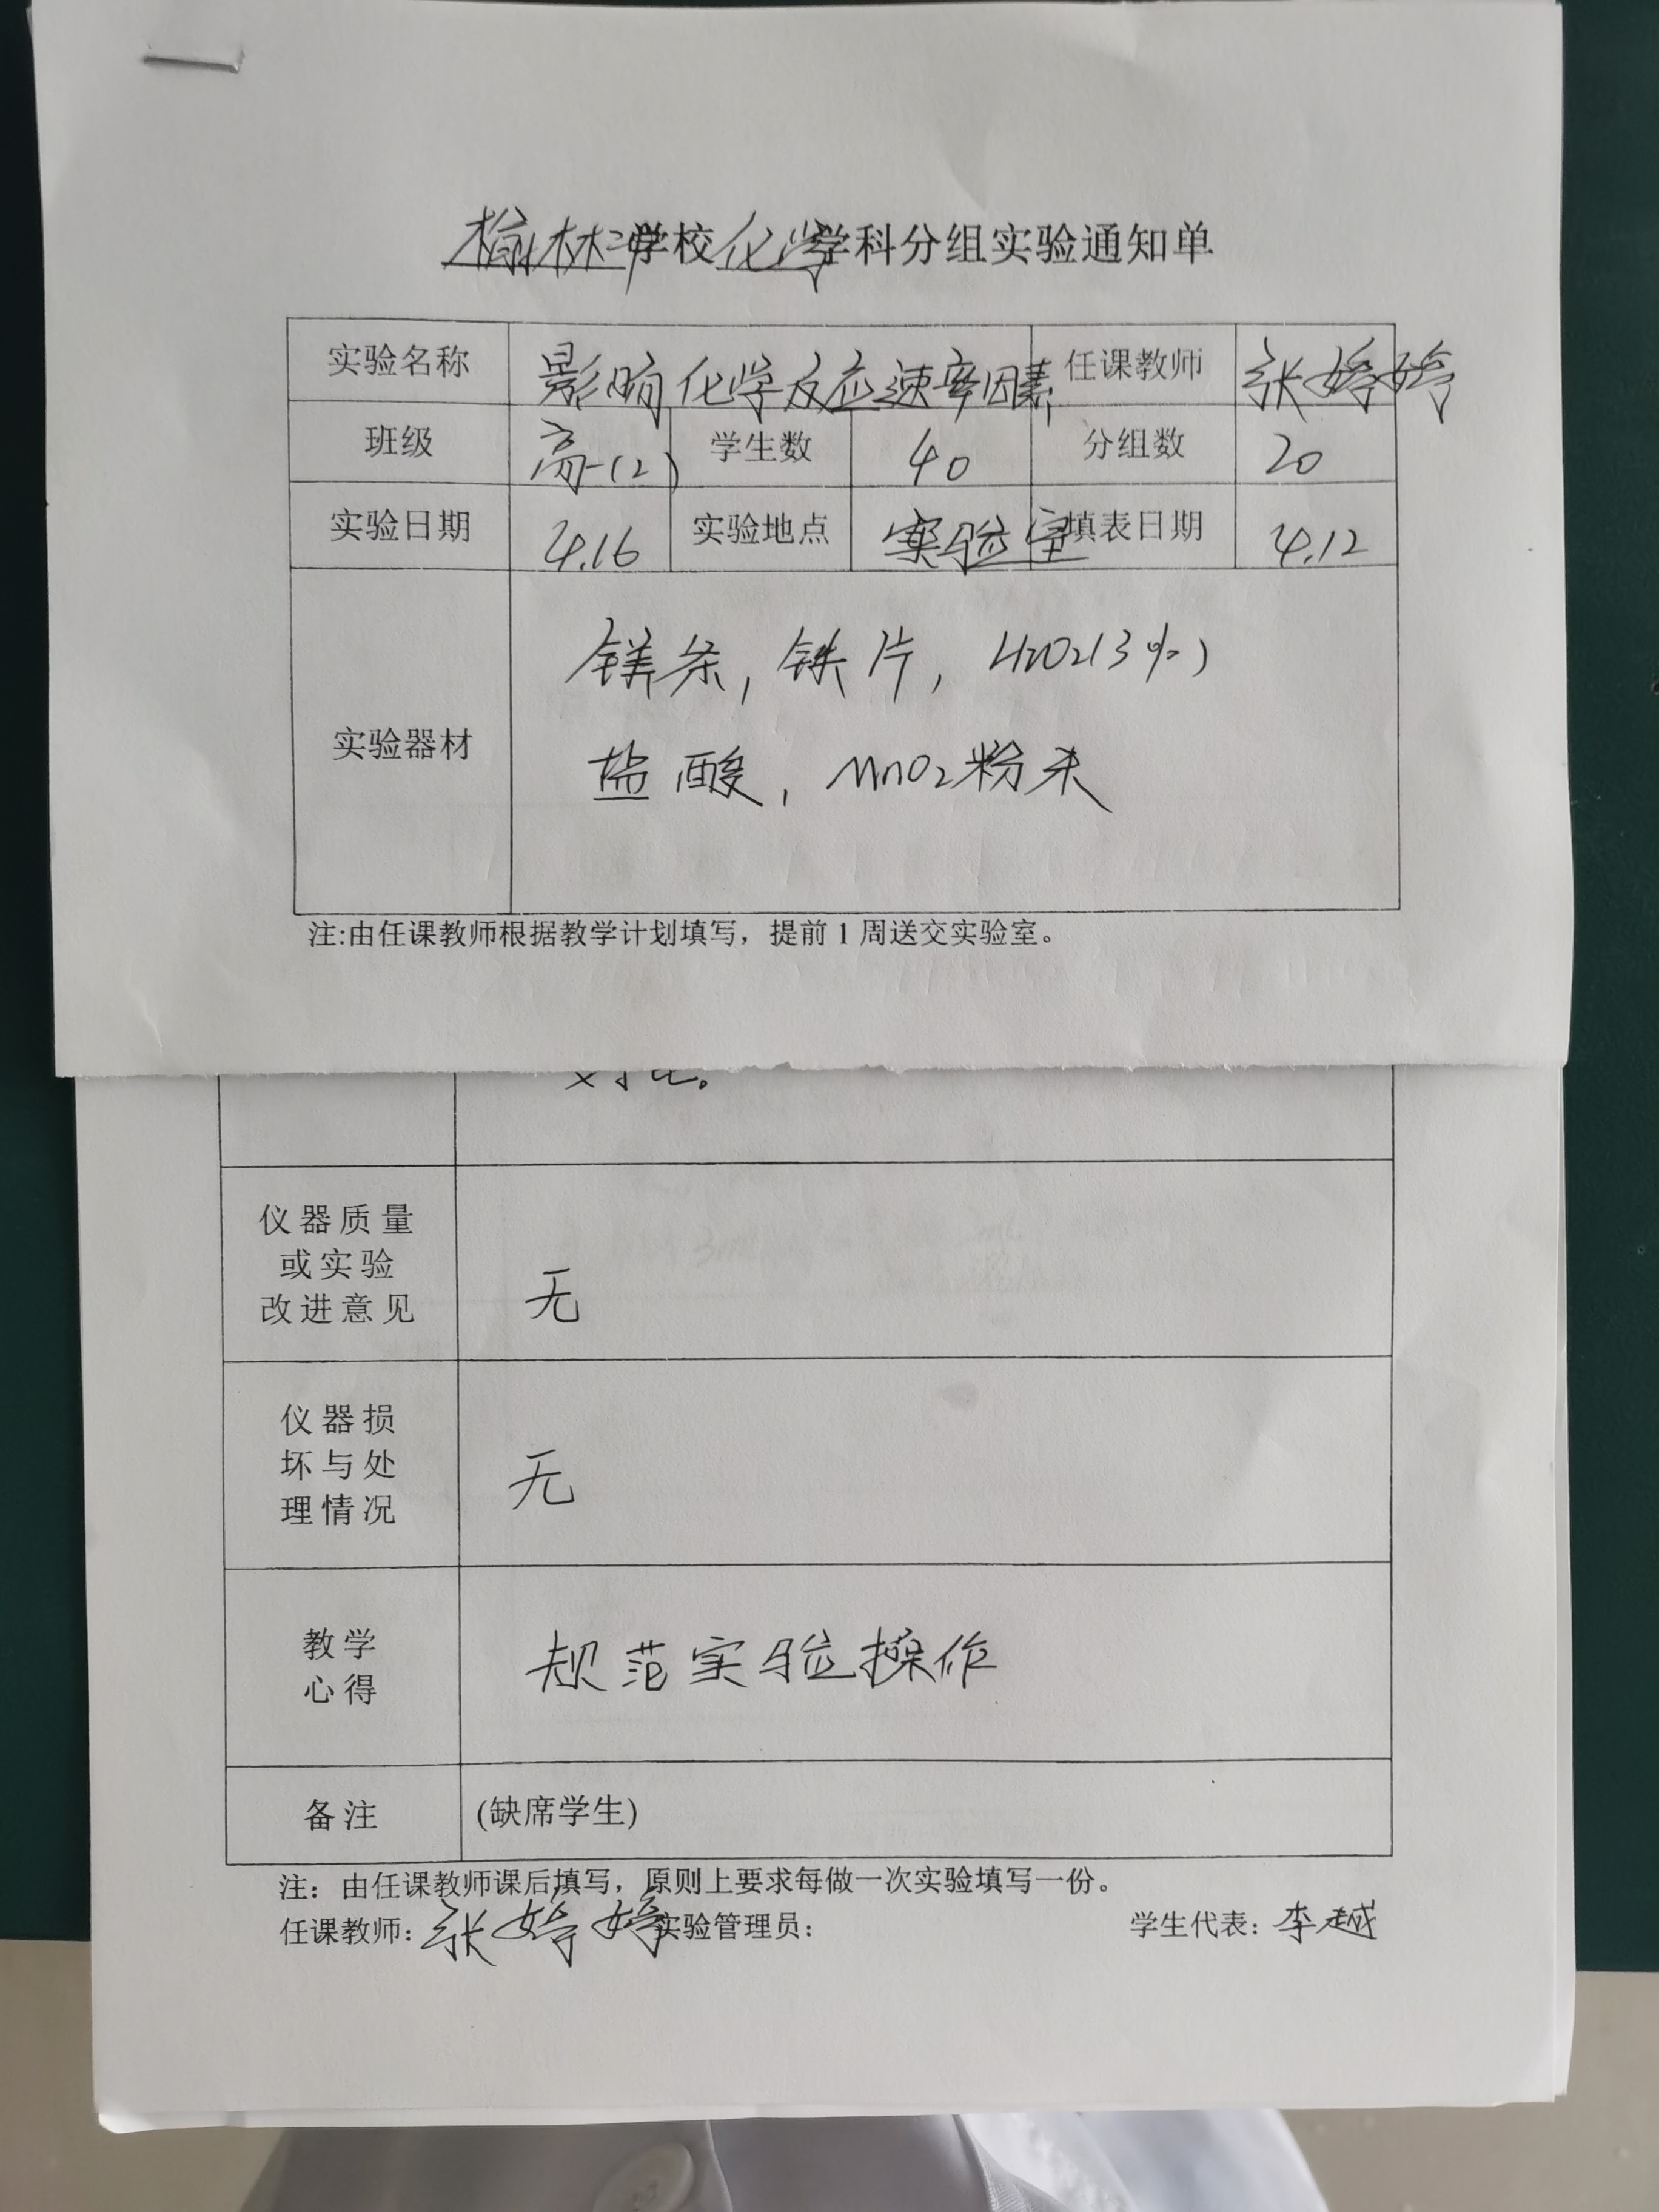 榆林二中学校化学学科分组实验通知单
实验名称 影响化学反应速率因素 任课教师 张婷婷
班级 高一(2) 学生数 40 分组数 20
实验日期 4.16 实验地点 实验室 填表日期 4.12
镁条，铁片，H2O2(3%)
实验器材
盐酸，MnO2粉末
注:由任课教师根据教学计划填写，提前1周送交实验室。
对比。
仪器质量
或实验
改进意见
无
仪器损
坏与处
理情况
无
教学
心得
规范实验操作
备注 (缺席学生)
注：由任课教师课后填写，原则上要求每做一次实验填写一份。
任课教师: 张婷婷 实验管理员: 学生代表: 李越